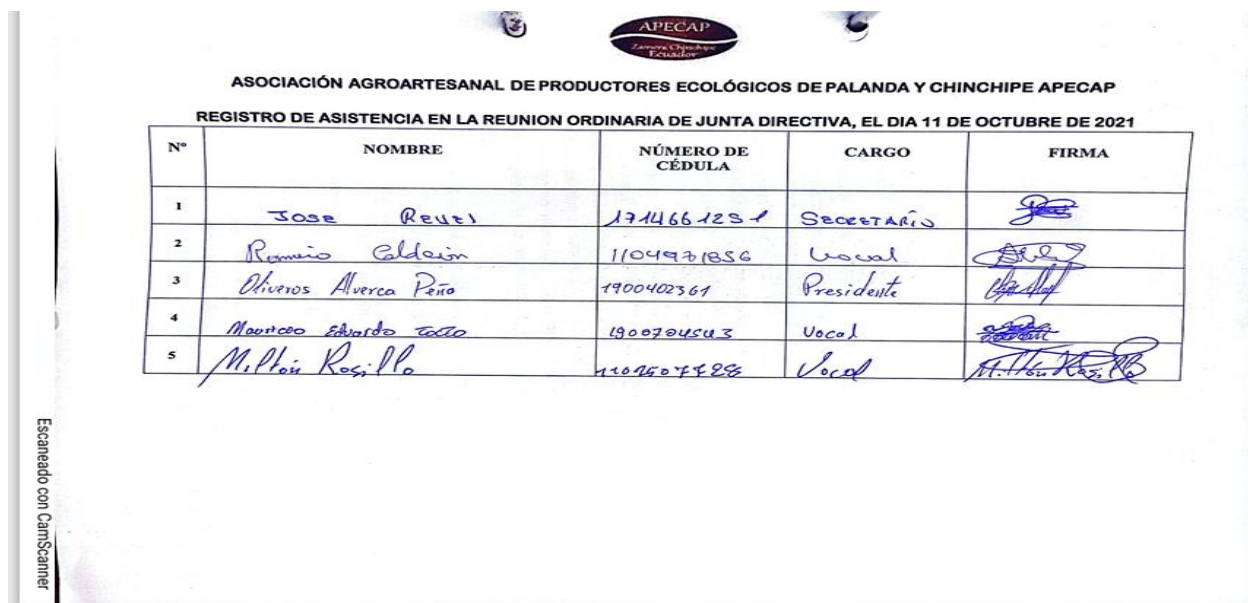 APECAP
Zamora Chinchipe
Ecuador
ASOCIACIÓN AGROARTESANAL DE PRODUCTORES ECOLÓGICOS DE PALANDA Y CHINCHIPE APECAP
REGISTRO DE ASISTENCIA EN LA REUNION ORDINARIA DE JUNTA DIRECTIVA, EL DIA 11 DE OCTUBRE DE 2021
N° NOMBRE NÚMERO DE CÉDULA CARGO FIRMA
1 JOSE 1714661251 SECRETARÍO
2 Romeio Calderón 1104971856 Vocal
3 Oliveros Alverca Peña 1900402361 Presidente
4 Eduardo 1900704543 Vocal
5 Milton Rosillo Vocal Milton Rosillo
Escaneado con CamScanner